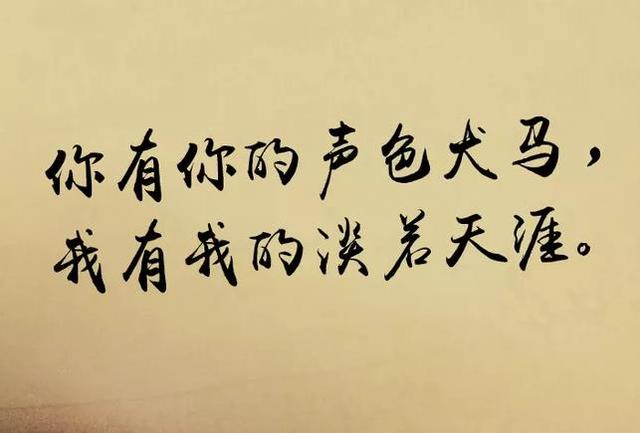 你有你的声色犬马，
我有我的淡若天涯。